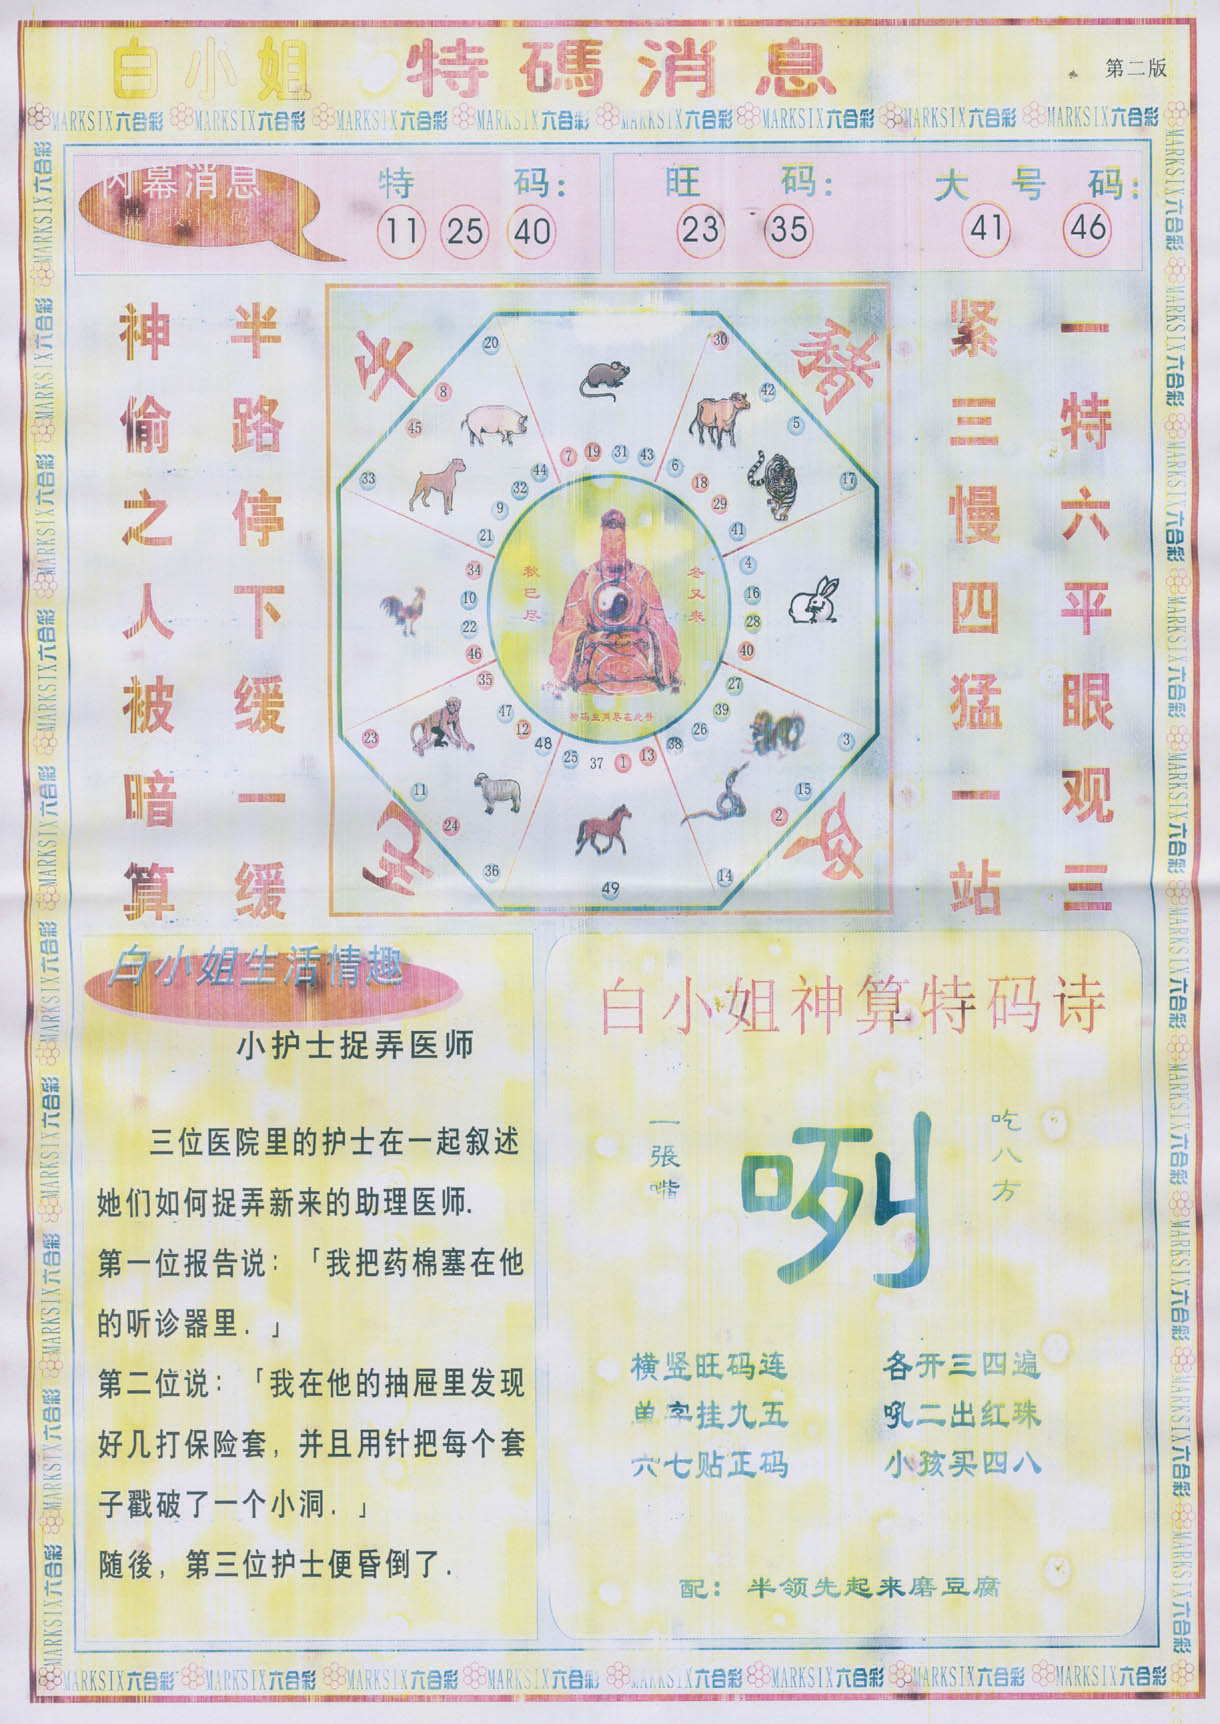 白小姐 特碼消息
第二版
MARKSIX六合彩 MARKSIX六合彩 MARKSIX六合彩 MARKSIX六合彩 MARKSIX六合彩 MARKSIX六合彩 MARKSIX六合彩 MARKSIX六合彩
内幕消息
特 码:
11 25 40
旺 码:
23 35
大 号 码:
41 46
一特六平眼观三
紧三慢四猛一站
半路停下缓一缓
神偷之人被暗算
豬
20 30
8 42
45 5
33 17
7 19 31 43
44 6
32 18
9 29
21 41
34 4
10 16
22 28
46 40
35 27
47 39
12 26
48 38
25 37 1 13
23 3
11 15
24 2
36 14
49
冬又来
秋已尽
白小姐生活情趣
小护士捉弄医师
三位医院里的护士在一起叙述
她们如何捉弄新来的助理医师.
第一位报告说:「我把药棉塞在他
的听诊器里.」
第二位说:「我在他的抽屉里发现
好几打保险套,并且用针把每个套
子戳破了一个小洞.」
随後,第三位护士便昏倒了.
白小姐神算特码诗
吃八方
咧
一張嘴
横竖旺码连 各开三四遍
单字挂九五 吼二出红珠
六七贴正码 小孩买四八
配: 半领先起来磨豆腐
MARKSIX六合彩 MARKSIX六合彩 MARKSIX六合彩 MARKSIX六合彩 MARKSIX六合彩 MARKSIX六合彩 MARKSIX六合彩 MARKSIX六合彩